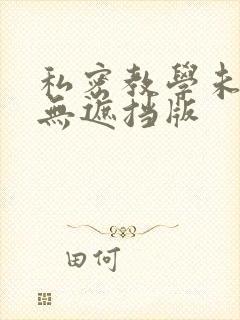 私密教學未
無遮挡版
田何